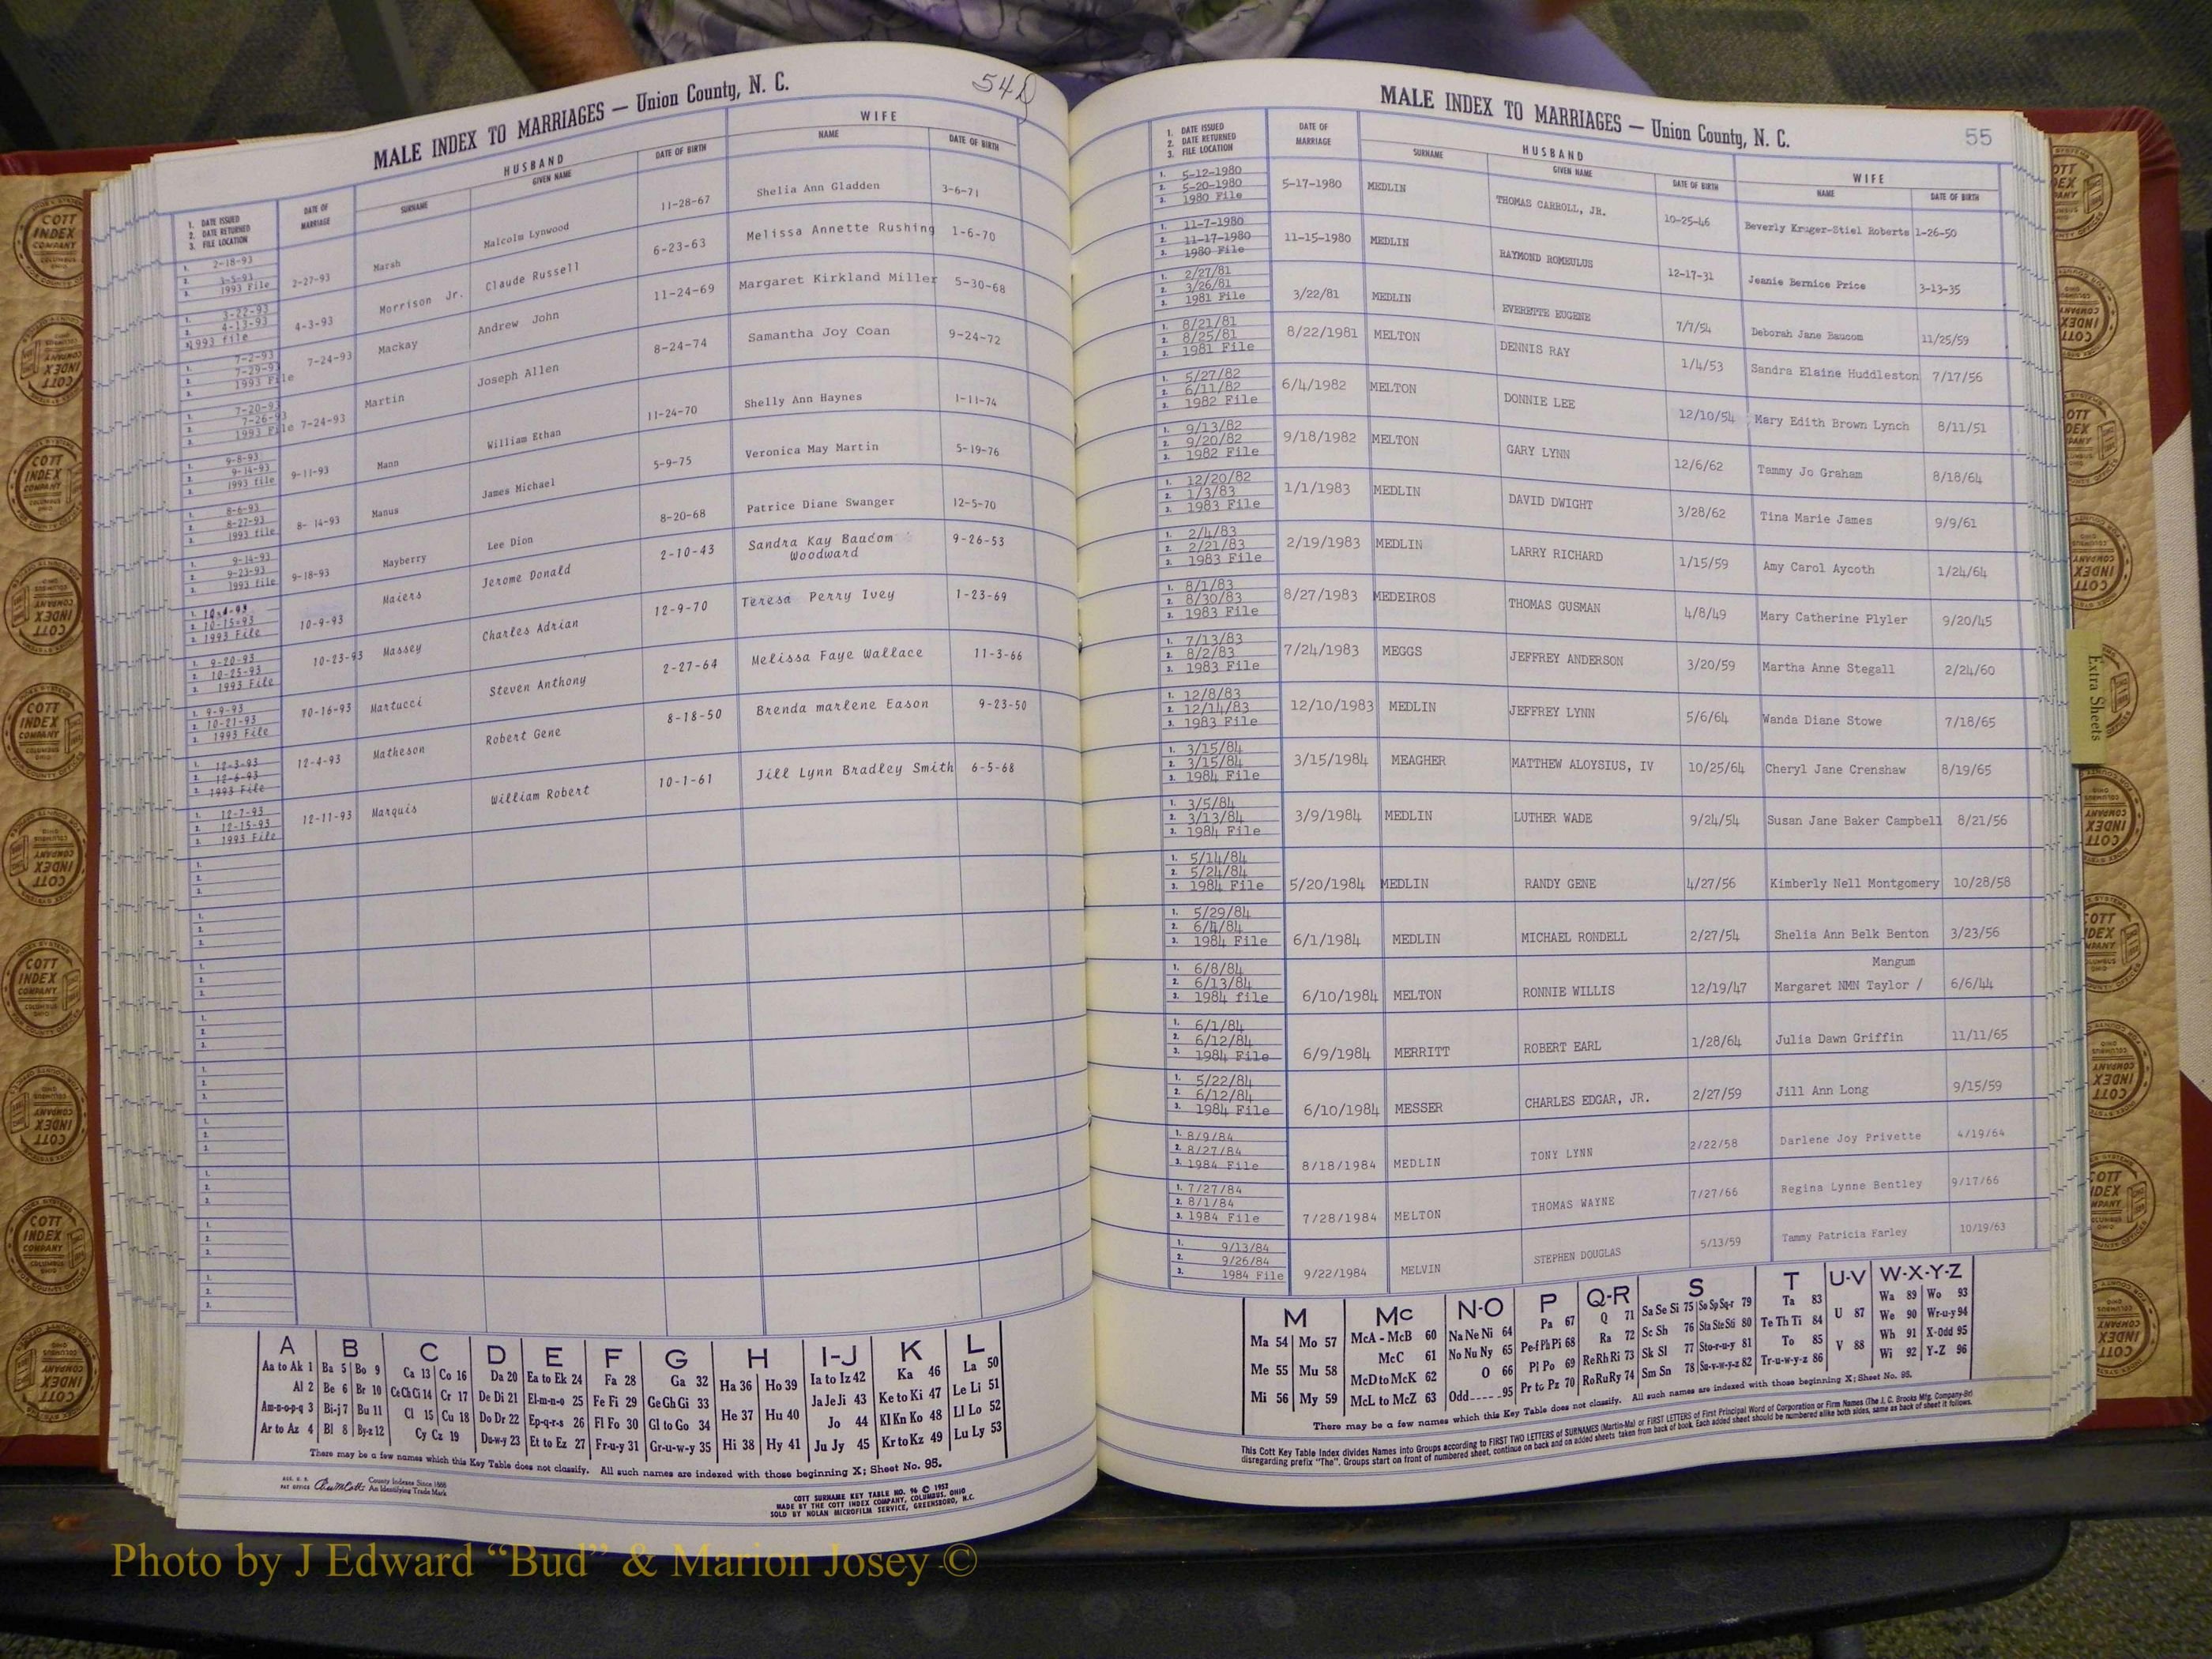 MALE INDEX TO MARRIAGES — Union County, N. C.
HUSBAND WIFE
1. DATE ISSUED 2. DATE RETURNED 3. FILE LOCATION DATE OF MARRIAGE SURNAME GIVEN NAME DATE OF BIRTH NAME DATE OF BIRTH
1. 2-18-93 2. 3-5-93 3. 1993 File 2-27-93 Marsh Malcolm Lynwood 11-28-67 Shelia Ann Gladden 3-6-71
1. 3-22-93 2. 4-13-93 3. 1993 file 4-3-93 Morrison Jr. Claude Russell 6-23-63 Melissa Annette Rushing 1-6-70
1. 7-2-93 2. 7-29-93 3. 1993 File 7-24-93 Mackay Andrew John 11-24-69 Margaret Kirkland Miller 5-30-68
1. 7-20-93 2. 7-26-93 3. 1993 File 7-24-93 Martin Joseph Allen 8-24-74 Samantha Joy Coan 9-24-72
1. 9-8-93 2. 9-14-93 3. 1993 file 9-11-93 Mann William Ethan 11-24-70 Shelly Ann Haynes 1-11-74
1. 8-6-93 2. 8-27-93 3. 1993 file 8-14-93 Manus James Michael 5-9-75 Veronica May Martin 5-19-76
1. 9-14-93 2. 9-23-93 3. 1993 file 9-18-93 Mayberry Lee Dion 8-20-68 Patrice Diane Swanger 12-5-70
1. 10-4-93 2. 10-15-93 3. 1993 File 10-9-93 Maiers Jerome Donald 2-10-43 Sandra Kay Baucom Woodward 9-26-53
1. 9-20-93 2. 10-25-93 3. 1993 File 10-23-93 Massey Charles Adrian 12-9-70 Teresa Perry Ivey 1-23-69
1. 9-9-93 2. 10-21-93 3. 1993 File 10-16-93 Martucci Steven Anthony 2-27-64 Melissa Faye Wallace 11-3-66
1. 12-3-93 2. 12-6-93 3. 1993 File 12-4-93 Matheson Robert Gene 8-18-50 Brenda marlene Eason 9-23-50
1. 12-7-93 2. 12-15-93 3. 1993 File 12-11-93 Marquis William Robert 10-1-61 Jill Lynn Bradley Smith 6-5-68
A B C D E F G H I-J K L
Aa to Ak 1 Ba 5 Bo 9 Ca 13 Co 16 Da 20 Ea to Ek 24 Fa 28 Ga 32 Ha 36 Ho 39 Ia to Iz 42 Ka 46 La 50
Al 2 Be 6 Br 10 Ce Ch Ci 14 Cr 17 De Di 21 El-m-n-o 25 Fe Fi 29 Ge Gh Gi 33 He 37 Hu 40 Ja Je Ji 43 Ke to Ki 47 Le Li 51
Am-n-o-p-q 3 Bi-j 7 Bu 11 Cl 15 Cu 18 Do Dr 22 Ep-q-r-s 26 Fl Fo 30 Gl to Go 34 Hi 38 Hy 41 Jo 44 Kl Kn Ko 48 Ll Lo 52
Ar to Az 4 Bl 8 By-z 12 Cy Cz 19 Du-w-y 23 Et to Ez 27 Fr-u-y 31 Gr-u-w-y 35 Ju Jy 45 Kr to Kz 49 Lu Ly 53
There may be a few names which this Key Table does not classify. All such names are indexed with those beginning X; Sheet No. 95.
REG. U. S. PAT OFFICE County Indexes Since 1888 An Identifying Trade Mark
COTT SURNAME KEY TABLE NO. 96 © 1952
MADE BY THE COTT INDEX COMPANY, COLUMBUS, OHIO
SOLD BY NOLAN MICROFILM SERVICE, GREENSBORO, N.C.
MALE INDEX TO MARRIAGES — Union County, N. C. 55
HUSBAND WIFE
1. DATE ISSUED 2. DATE RETURNED 3. FILE LOCATION DATE OF MARRIAGE SURNAME GIVEN NAME DATE OF BIRTH NAME DATE OF BIRTH
1. 5-12-1980 2. 5-20-1980 3. 1980 File 5-17-1980 MEDLIN THOMAS CARROLL, JR. 10-25-46 Beverly Kruger-Stiel Roberts 1-26-50
1. 11-7-1980 2. 11-17-1980 3. 1980 File 11-15-1980 MEDLIN RAYMOND ROMEULUS 12-17-31 Jeanie Bernice Price 3-13-35
1. 2/27/81 2. 3/26/81 3. 1981 File 3/22/81 MEDLIN EVERETTE EUGENE 7/7/54 Deborah Jane Baucom 11/25/59
1. 8/21/81 2. 8/25/81 3. 1981 File 8/22/1981 MELTON DENNIS RAY 1/4/53 Sandra Elaine Huddleston 7/17/56
1. 5/27/82 2. 6/11/82 3. 1982 File 6/4/1982 MELTON DONNIE LEE 12/10/54 Mary Edith Brown Lynch 8/11/51
1. 9/13/82 2. 9/20/82 3. 1982 File 9/18/1982 MELTON GARY LYNN 12/6/62 Tammy Jo Graham 8/18/64
1. 12/20/82 2. 1/3/83 3. 1983 File 1/1/1983 MEDLIN DAVID DWIGHT 3/28/62 Tina Marie James 9/9/61
1. 2/4/83 2. 2/21/83 3. 1983 File 2/19/1983 MEDLIN LARRY RICHARD 1/15/59 Amy Carol Aycoth 1/24/64
1. 8/1/83 2. 8/30/83 3. 1983 File 8/27/1983 MEDEIROS THOMAS GUSMAN 4/8/49 Mary Catherine Plyler 9/20/45
1. 7/13/83 2. 8/2/83 3. 1983 File 7/24/1983 MEGGS JEFFREY ANDERSON 3/20/59 Martha Anne Stegall 2/24/60
1. 12/8/83 2. 12/14/83 3. 1983 File 12/10/1983 MEDLIN JEFFREY LYNN 5/6/64 Wanda Diane Stowe 7/18/65
1. 3/15/84 2. 3/15/84 3. 1984 File 3/15/1984 MEAGHER MATTHEW ALOYSIUS, IV 10/25/64 Cheryl Jane Crenshaw 8/19/65
1. 3/5/84 2. 3/13/84 3. 1984 File 3/9/1984 MEDLIN LUTHER WADE 9/24/54 Susan Jane Baker Campbell 8/21/56
1. 5/14/84 2. 5/24/84 3. 1984 File 5/20/1984 MEDLIN RANDY GENE 4/27/56 Kimberly Nell Montgomery 10/28/58
1. 5/29/84 2. 6/4/84 3. 1984 File 6/1/1984 MEDLIN MICHAEL RONDELL 2/27/54 Shelia Ann Belk Benton 3/23/56
1. 6/8/84 2. 6/13/84 3. 1984 file 6/10/1984 MELTON RONNIE WILLIS 12/19/47 Margaret NMN Taylor / Mangum 6/6/44
1. 6/1/84 2. 6/12/84 3. 1984 File 6/9/1984 MERRITT ROBERT EARL 1/28/64 Julia Dawn Griffin 11/11/65
1. 5/22/84 2. 6/12/84 3. 1984 File 6/10/1984 MESSER CHARLES EDGAR, JR. 2/27/59 Jill Ann Long 9/15/59
1. 8/9/84 2. 8/27/84 3. 1984 File 8/18/1984 MEDLIN TONY LYNN 2/22/58 Darlene Joy Privette 4/19/64
1. 7/27/84 2. 8/1/84 3. 1984 File 7/28/1984 MELTON THOMAS WAYNE 7/27/66 Regina Lynne Bentley 9/17/66
1. 9/13/84 2. 9/26/84 3. 1984 File 9/22/1984 MELVIN STEPHEN DOUGLAS 5/13/59 Tammy Patricia Farley 10/19/63
M Mc N-O P Q-R S T U-V W-X-Y-Z
Ma 54 Mo 57 McA - McB 60 Na Ne Ni 64 Pa 67 Q 71 Sa Se Si 75 So Sp Sq-r 79 Ta 83 U 87 Wa 89 Wo 93
Me 55 Mu 58 McC 61 No Nu Ny 65 Pe-f Ph Pi 68 Ra 72 Sc Sh 76 Sta Ste Sti 80 Te Th Ti 84 V 88 We 90 Wr-u-y 94
Mi 56 My 59 McD to McK 62 O 66 Pl Po 69 Re Rh Ri 73 Sk Sl 77 Sto-r-u-y 81 To 85 Wh 91 X-Odd 95
McL to McZ 63 Odd 95 Pr to Pz 70 Ro Ru Ry 74 Sm Sn 78 Su-v-w-y-z 82 Tr-u-w-y-z 86 Wi 92 Y-Z 96
There may be a few names which this Key Table does not classify. All such names are indexed with those beginning X; Sheet No. 95.
This Cott Key Table Index divides Names into Groups according to FIRST TWO LETTERS of SURNAMES (Martin-Ma) or FIRST LETTERS of First Principal Word of Corporation or Firm Names (The J. C. Brooks Mfg. Company-Br)
disregarding prefix "The". Groups start on front of numbered sheet, continue on back and on added sheets taken from back of book. Each added sheet should be numbered alike both sides, same as back of sheet it follows.
Extra Sheets
COTT INDEX COMPANY COLUMBUS OHIO
Photo by J Edward “Bud” & Marion Josey ©